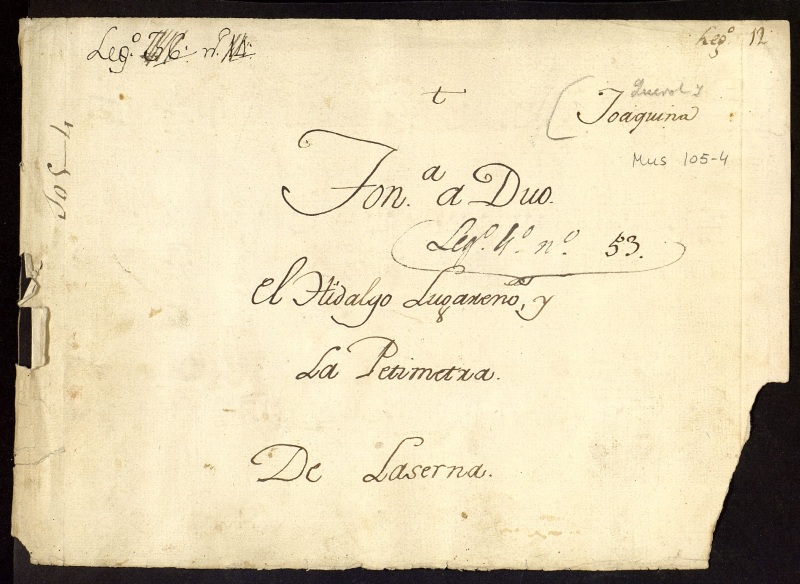 Leg.º nº.
Leg.º 12
t
Querol y
Joaquina
Mus 105-4
105-4
Ton.ª a Duo.
Leg.º 4.º n.º 53.
el Hidalgo Lugareño, y
La Petimetra.
De Laserna.